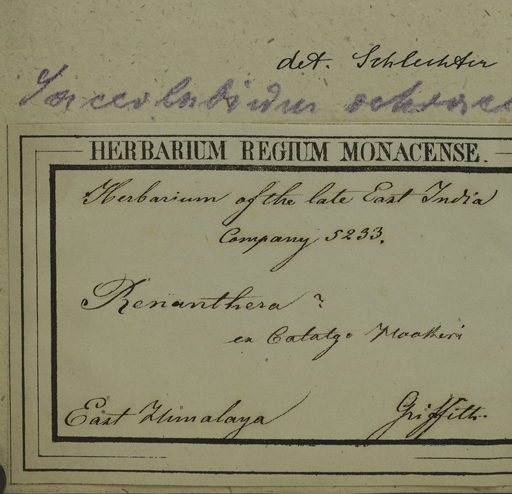 det. Schlechter
Saccolabium ochrace
HERBARIUM REGIUM MONACENSE.
Herbarium of the late East India
Company 5233.
Renanthera ?
ex Catalge Hookeri
East Himalaya Griffith.